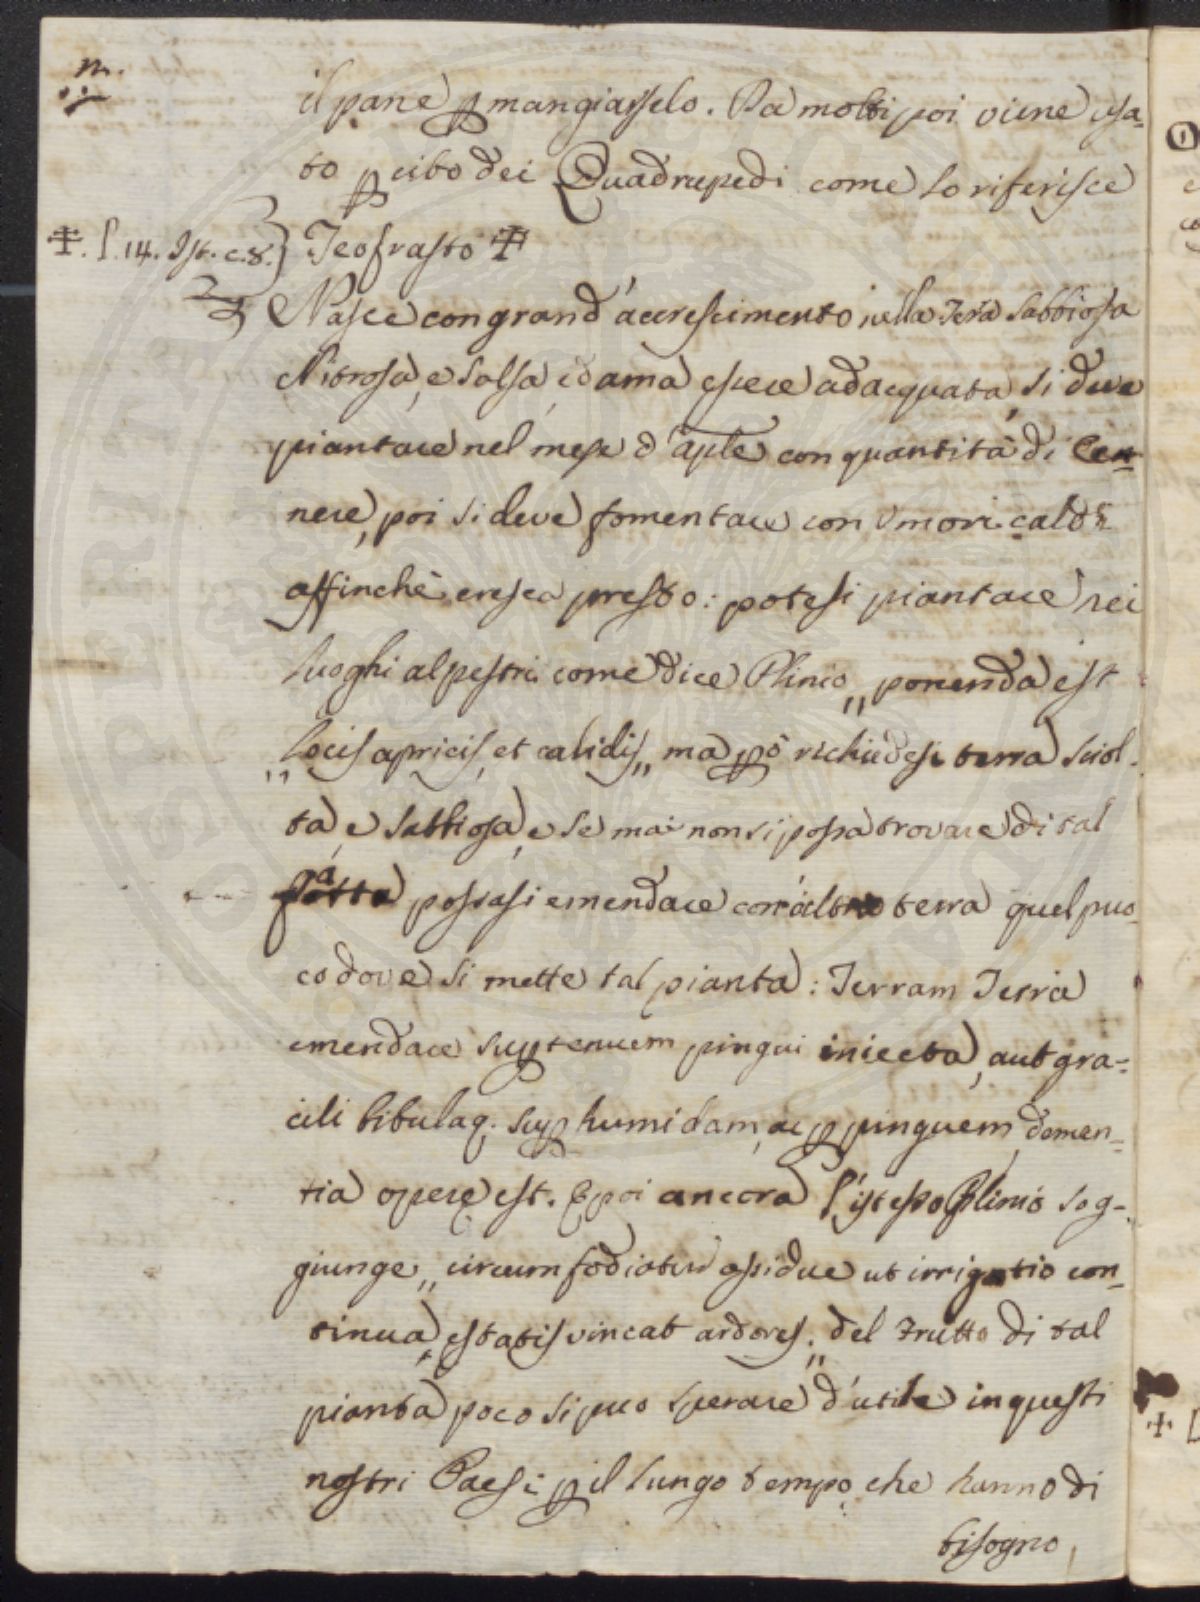 m.
il pane p mangiarselo. Da molti poi viene usa-
to p cibo dei Quadrupedi come lo riferisce
‡. l. 14. Ist. c. 8.} Teofrasto ‡
Nasce con grand' accrescimento nella Terra Sabbiosa
Nitrosa, e Salsa, ed ama essere adacquata, si deve
piantare nel mese d'aple con quantità di Cen-
nere, poi si deve fomentare con Umori caldi
affinchè cresca presto: potesi piantare nei
luoghi alpestri come dice Plinio „ ponenda est
„ locis apricis, et calidis „ ma pò richiedesi terra sciol-
ta, e sabbiosa, e se mai non si possa trovare di tal
fatta possasi emendare con altra terra quel puo-
co dove si mette tal pianta: Terram Terra
emendare sup tenuem pingui iniecta, aut gra-
cili bibulaq. sup humidam, ac p pinguem, demen-
tia opere est. E poi ancora l'istesso Plinio sog-
giunge „ circum fodiatur assidue ut irrigatio con-
tinua, estatis vincat ardores. „ del Frutto di tal
pianta poco si puo sperare d'utile in questi
nostri Paesi p il lungo tempo che hanno di
bisogno